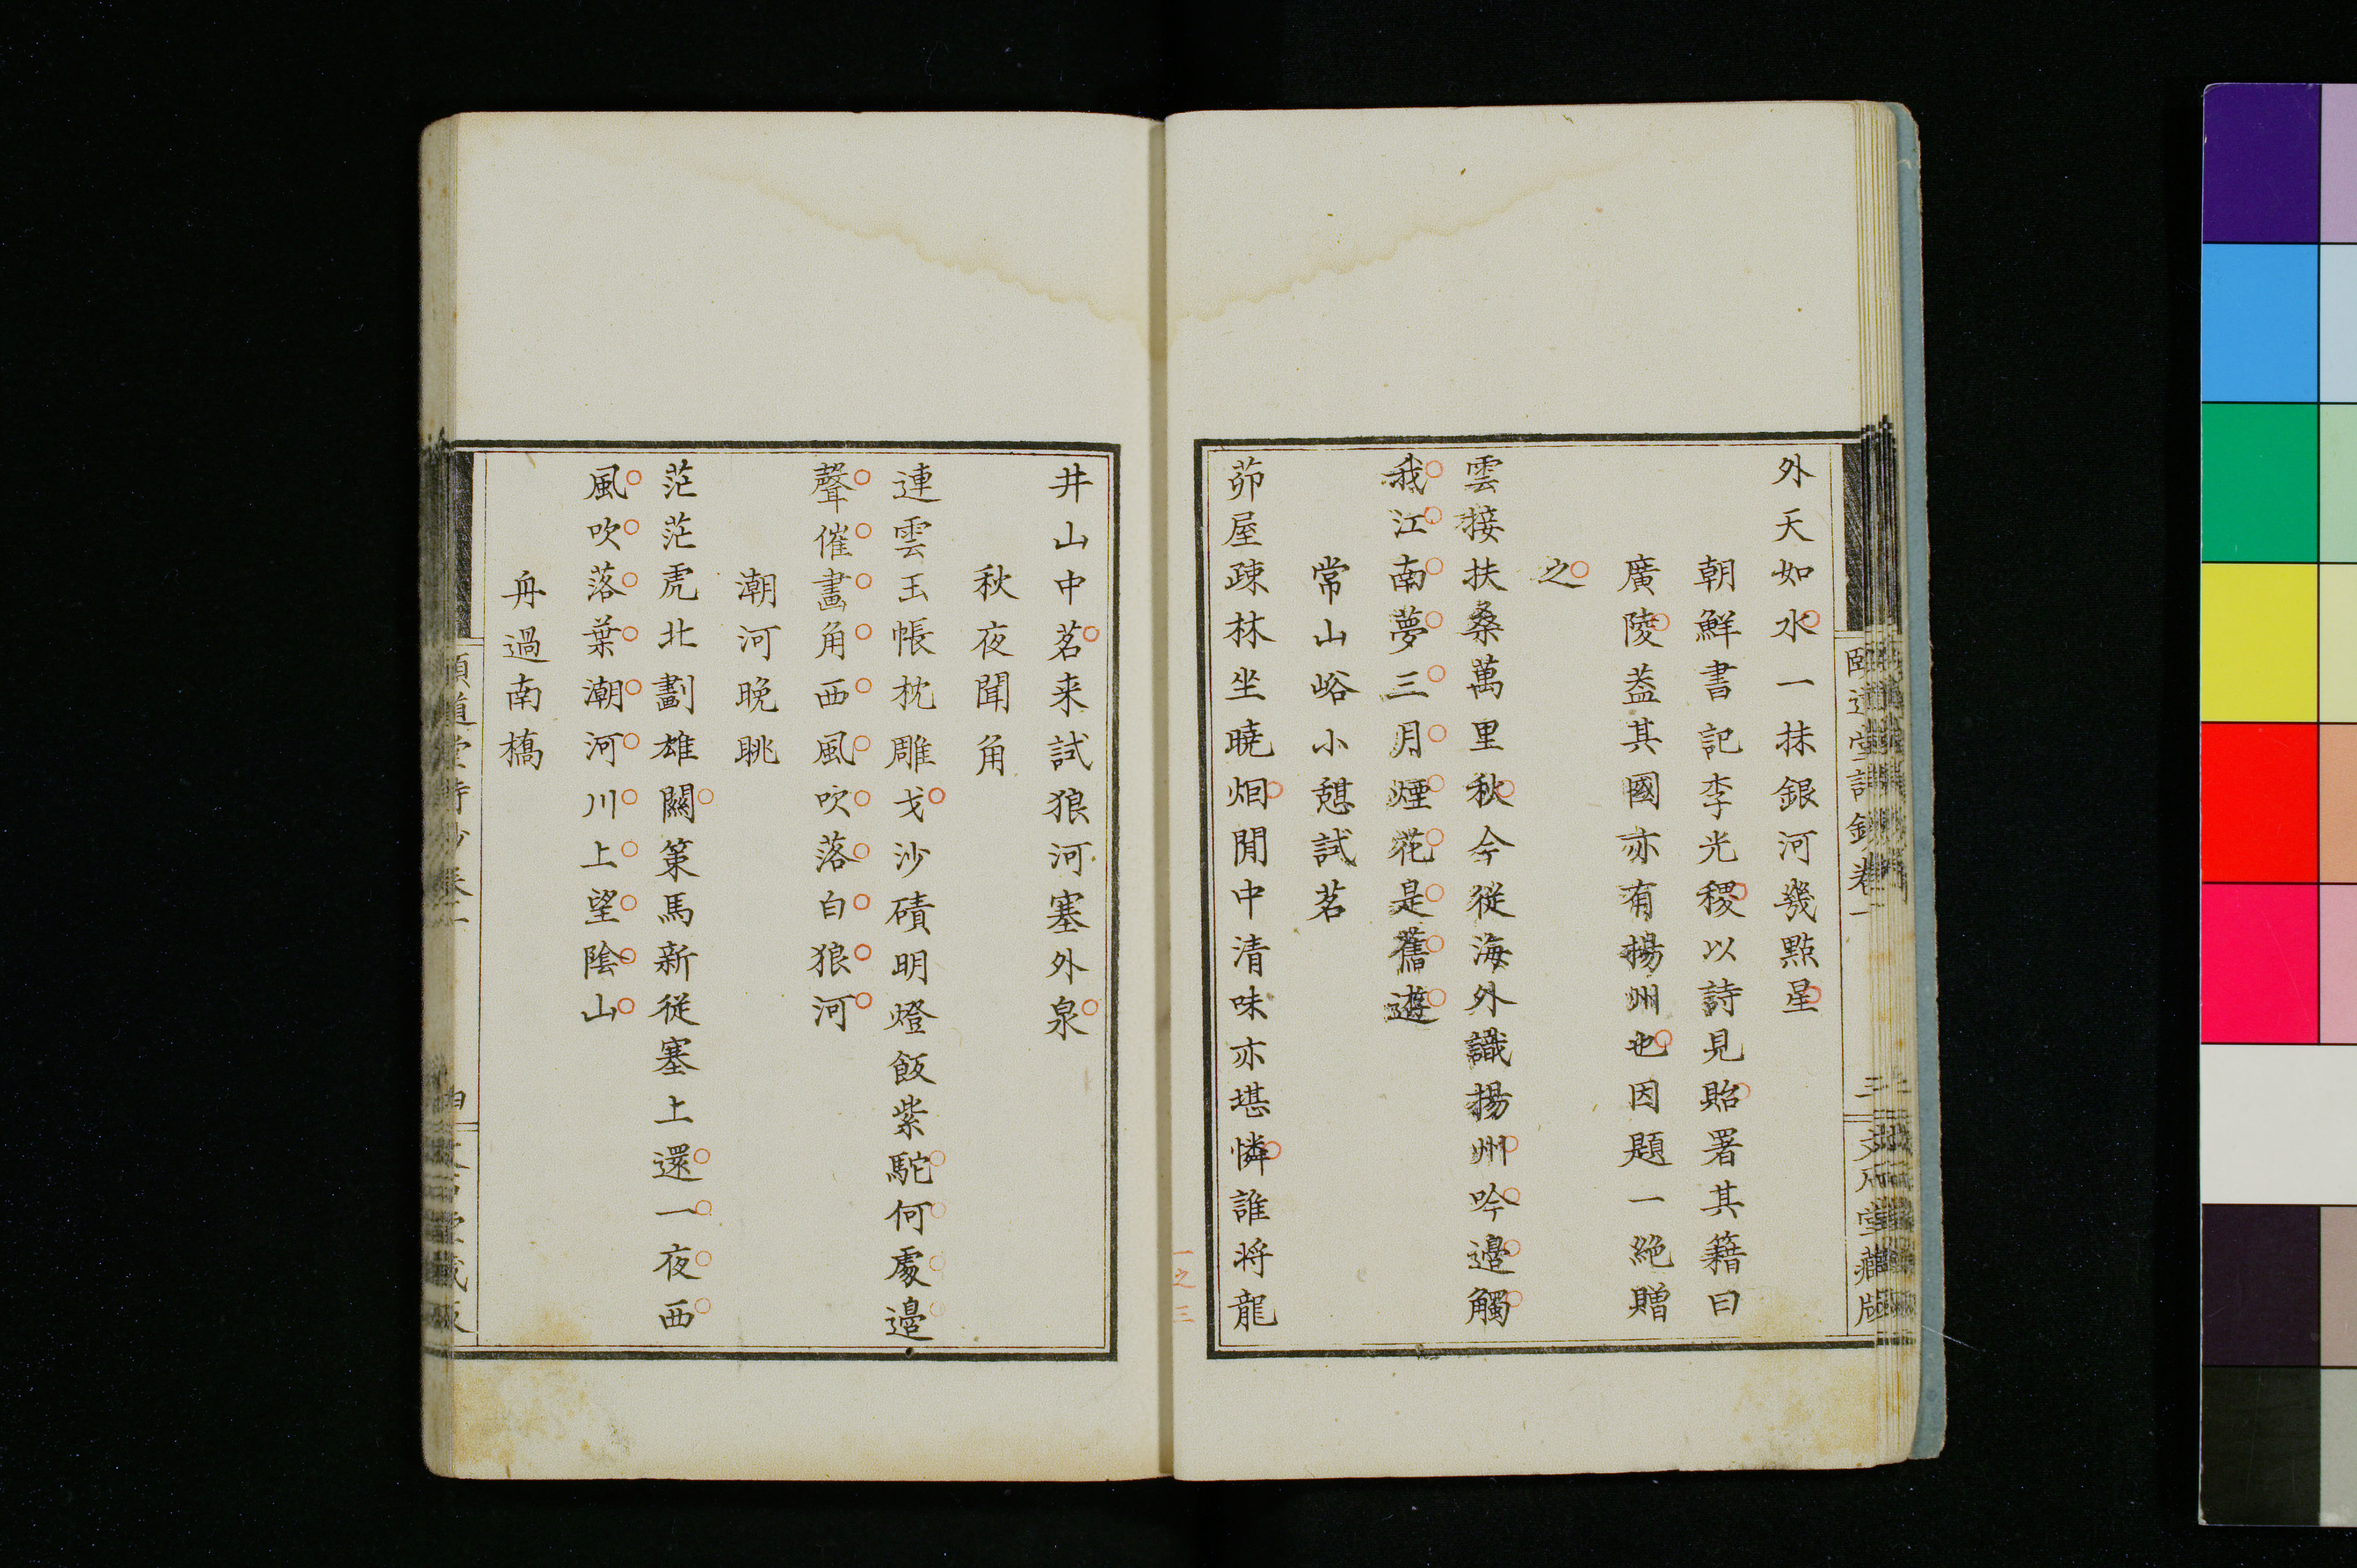 外天如水一抹銀河幾點星
朝鮮書記李光稷以詩見貽署其籍曰
廣陵葢其國亦有揚州也因題一絶贈
之
雲接扶桑萬里秋今從海外識揚州吟邉觸
我江南夢三月煙花是舊遊
常山峪小憩試茗
茆屋疎林坐曉烟閒中清味亦堪憐誰将龍
一之三
井山中茗来試狼河塞外泉
秋夜聞角
連雲玉帳枕雕戈沙磧明燈飯紫駝何處邉
聲催畵角西風吹落白狼河
潮河晚眺
茫茫虎北劃雄關策馬新從塞上還一夜西
風吹落葉潮河川上望陰山
舟過南橋